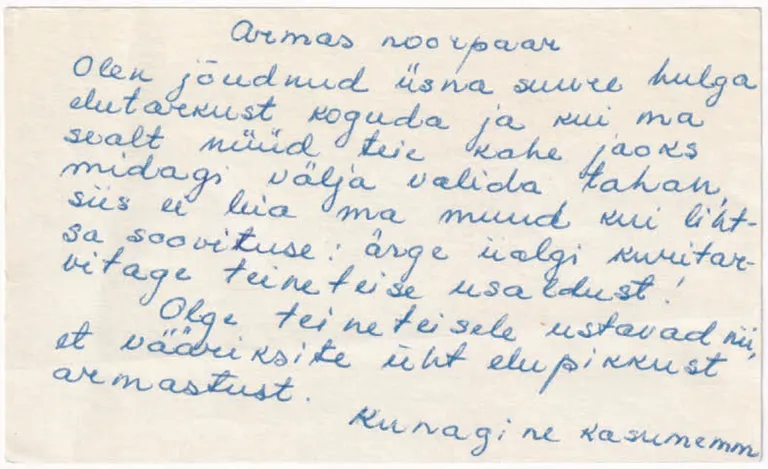 Armas noorpaar
Olen jõudnud üsna suure hulga
elutarkust koguda ja kui ma
sealt nüüd teie kahe jaoks
midagi välja valida tahan,
siis ei leia ma muud kui liht-
sa soovituse: ärge iialgi kuritar-
vitage teineteise usaldust!
Olge teineteisele ustavad nii,
et vääriksite üht elupikkust
armastust.
Kunagine kasumemm